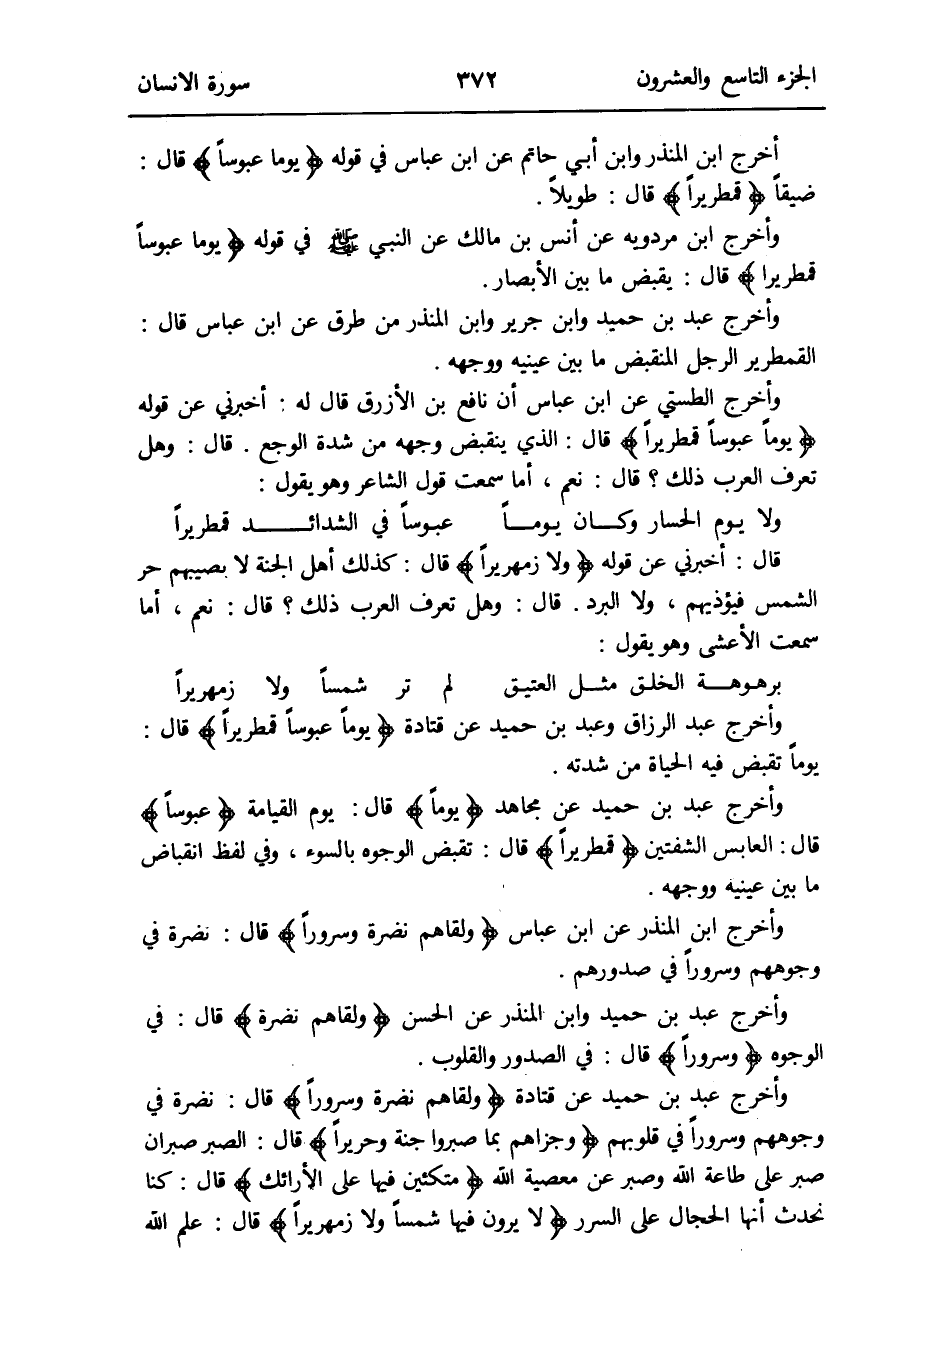 الجزء التاسع والعشرون ٣٧٢ سورة الانسان
أخرج ابن المنذر وابن أبي حاتم عن ابن عباس في قوله ﴿ يوما عبوساً ﴾ قال :
ضيقاً ﴿ قمطريراً ﴾ قال : طويلاً .
وأخرج ابن مردويه عن أنس بن مالك عن النبي ﷺ في قوله ﴿ يوما عبوساً
قمطريرا ﴾ قال : يقبض ما بين الأبصار .
وأخرج عبد بن حميد وابن جرير وابن المنذر من طرق عن ابن عباس قال :
القمطرير الرجل المنقبض ما بين عينيه ووجهه .
وأخرج الطستي عن ابن عباس أن نافع بن الأزرق قال له : أخبرني عن قوله
﴿ يوماً عبوساً قمطريراً ﴾ قال : الذي ينقبض وجهه من شدة الوجع . قال : وهل
تعرف العرب ذلك ؟ قال : نعم ، أما سمعت قول الشاعر وهو يقول :
ولا يوم الحسار وكان يوماً عبوساً في الشدائد قمطريراً
قال : أخبرني عن قوله ﴿ ولا زمهريراً ﴾ قال : كذلك أهل الجنة لا يصيبهم حر
الشمس فيؤذيهم ، ولا البرد . قال : وهل تعرف العرب ذلك ؟ قال : نعم ، أما
سمعت الأعشى وهو يقول :
برهوهة الخلق مثل العتيق لم تر شمساً ولا زمهريراً
وأخرج عبد الرزاق وعبد بن حميد عن قتادة ﴿ يوماً عبوساً قمطريراً ﴾ قال :
يوماً تقبض فيه الحياة من شدته .
وأخرج عبد بن حميد عن مجاهد ﴿ يوماً ﴾ قال : يوم القيامة ﴿ عبوساً ﴾
قال : العابس الشفتين ﴿ قمطريراً ﴾ قال : تقبض الوجوه بالسوء ، وفي لفظ انقباض
ما بين عينيه ووجهه .
وأخرج ابن المنذر عن ابن عباس ﴿ ولقاهم نضرة وسروراً ﴾ قال : نضرة في
وجوههم وسروراً في صدورهم .
وأخرج عبد بن حميد وابن المنذر عن الحسن ﴿ ولقاهم نضرة ﴾ قال : في
الوجوه ﴿ وسروراً ﴾ قال : في الصدور والقلوب .
وأخرج عبد بن حميد عن قتادة ﴿ ولقاهم نضرة وسروراً ﴾ قال : نضرة في
وجوههم وسروراً في قلوبهم ﴿ وجزاهم بما صبروا جنة وحريراً ﴾ قال : الصبر صبران
صبر على طاعة الله وصبر عن معصية الله ﴿ متكئين فيها على الأرائك ﴾ قال : كنا
نحدث أنها الحجال على السرر ﴿ لا يرون فيها شمساً ولا زمهريراً ﴾ قال : علم الله